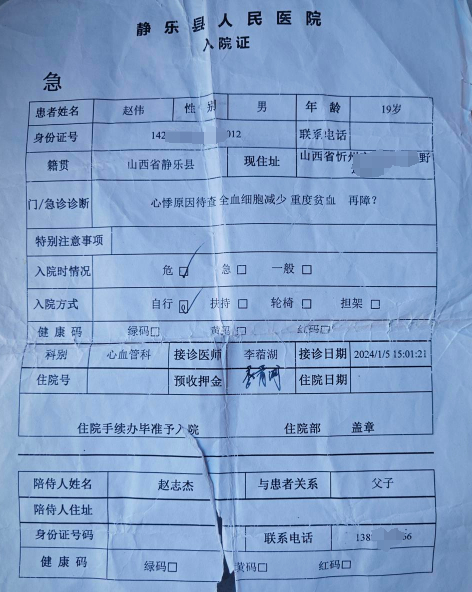 静乐县人民医院
入院证
急
患者姓名 赵伟 性别 男 年龄 19岁
身份证号 142 012 联系电话
籍贯 山西省静乐县 现住址 山西省忻州 野
门/急诊诊断 心悸原因待查全血细胞减少 重度贫血 再障?
特别注意事项
入院时情况 危☑ 急□ 一般□
入院方式 自行☑ 扶持□ 轮椅□ 担架□
健康码 绿码□ 黄码□ 红码□
科别 心血管科 接诊医师 李蓿湖 接诊日期 2024/1/5 15:01:21
住院号 预收押金 住院日期
住院手续办毕准予入院 住院部 盖章
陪侍人姓名 赵志杰 与患者关系 父子
陪侍人住址
身份证号码 联系电话 138 66
健康码 绿码□ 黄码□ 红码□